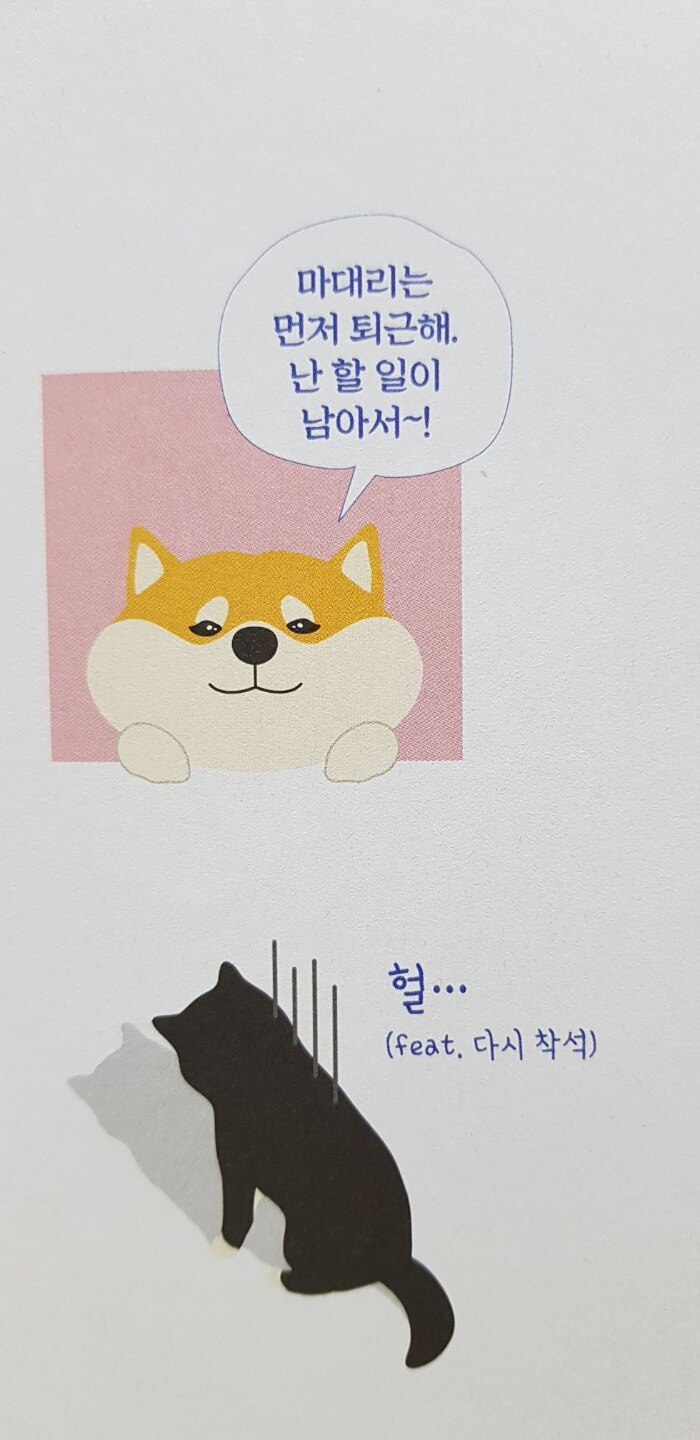 마대리는
먼저 퇴근해.
난 할 일이
남아서~!
헐...
(feat. 다시 착석)